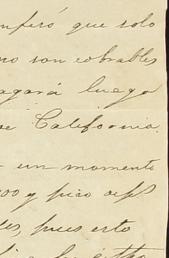 que solo
no son cobrables
pagará luego
de California.
un momento
000 y pico
pues esto